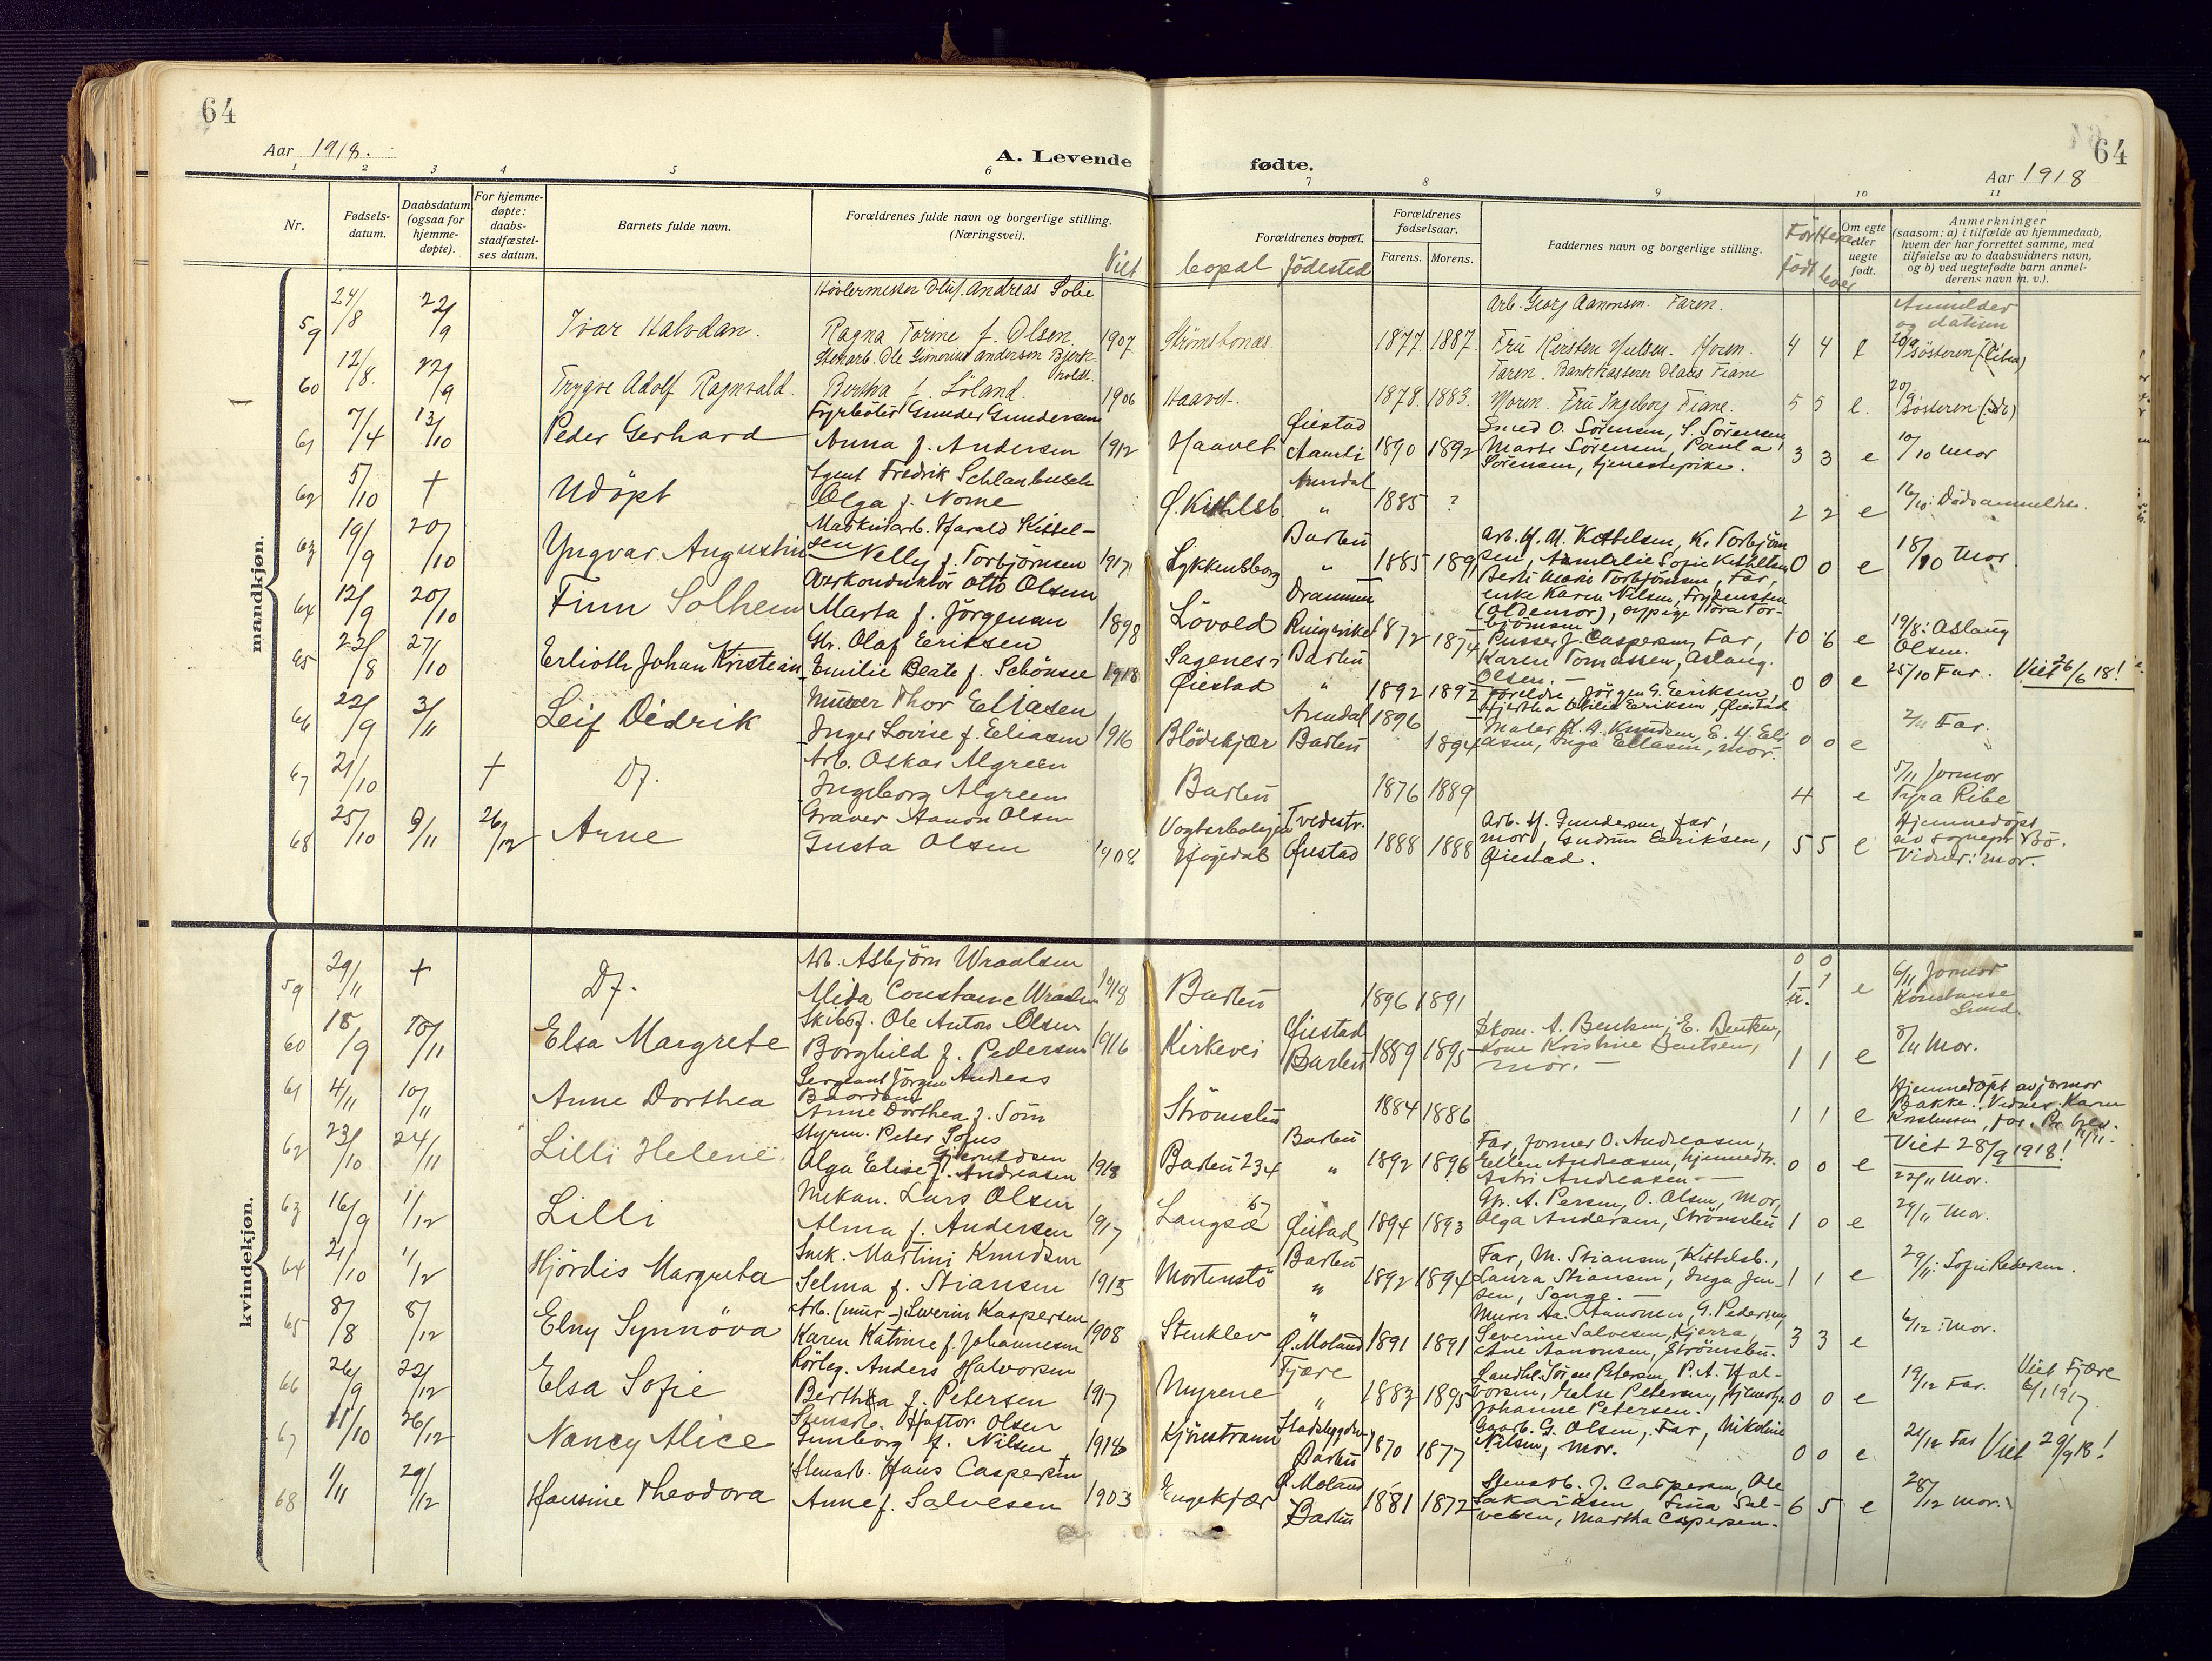 64
64
Aar 1918.
A. Levende
fødte.
Aar 1918
1 2 3 4 5 6 7 8 9 10 11
Nr.
Fødsels-
datum.
Daabsdatum
(ogsaa for
hjemme-
døpte).
For hjemme-
døpte:
daabs-
stadfæstel-
ses datum.
Barnets fulde navn.
Forældrenes fulde navn og borgerlige stilling.
(Næringsvei).
Viet
Forældrenes bopæl.
bopæl födested
Forældrenes
fødselsaar.
Farens. Morens.
Faddernes navn og borgerlige stilling.
Om egte
eller
uegte
født.
Anmerkninger
(saasom: a) i tilfælde av hjemmedaab,
hvem der har forrettet samme, med
tilføielse av to daabsvidners navn,
og b) ved uegtefødte barn anmel-
derens navn m. v.).
Anmelder
og datum
mandkjøn.
59 24/8 22/9 Ivar Halvdan.
Høvlermester Oluf Andreas Solie
Ragna Torine f. Olsen. 1907. Strømsbonæs. 1877 1887.
Arb. Georg Aanonsen. Faren.
Fru Kirsten Nielsen. Moren. 4 4 e
60 12/8. 22/9 Trygve Adolf Ragnvald.
Bertha f. Löland. 1906 Haavet. 1878. 1883.
Faren. Bankkasserer Olaus Fiane
Moren. Fru Ingeborg Fiane. 5 5 e.
61 7/4 13/10 Peder Gerhard
Fyrböter Gunder Gundersen
Anna f. Andersen 1912 Haavet Öiestad
Aamli 1890 1892
Smed O. Sørensen, S. Sørensen
Marte Sørensen, Paula
Sørensen, tjenestepike. 3 3 e 10/10 mor
62 5/10 † Udöpt
Agent Fredrik Schlanbusch
Olga f. Nome Ö. Kittelsb. Arendal
" 1885 ? 2 2 e 16/10: Dödsanmeldse.
63 19/9 20/10 Yngvar Augustin
Maskinarb. Harald Kittel-
sen Nelly f. Torbjörnsen 1917 Lykkensborg Barbu
" 1885 1891
Arb. H. M. Kittelsen, K. Torbjörn
sen, Amalie Sofie Kittelsen
Berti Marie Torbjörnsen, Far, 0 0 e 18/10 mor
64 12/9 20/10 Finn Solhem
Overkonduktör Otto Olsen
Marta f. Jörgensen 1898 Lövold Drammen
Ringerike 1872 1874
enke Karen Nilsen, Frydensten
(oldemor), sypige Tora Tor-
björnsen
Pusser J. Caspersen, Far,
Karen Tomassen, Aslaug
Olsen. 10 6 e 19/8: Aslaug
Olsen.
65 22/8 27/10 Erlioth Johan Kristian
Gbr. Olaf Eeriksen
Emilie Beate f. Schönsee 1918 Sagenesi
Öiestad Barbu
" 1892 1892
Foreldre, Jörgen G. Eeriksen,
Hjertha Otilia Eeriksen, Öiestad 0 0 e 25/10 Far. Viet 26/6 18!
66 22/9 3/11 Leif Didrik
Murer Thor Eliasen
Inger Lovise f. Eeliasen 1916 Blödekjær Arendal
Barbu 1896 1894
Maler K. A. Knudsen, E. H. Eeli
asen, Inga Eeliasen, mor. 0 0 e 2/11 Far.
67 21/10 † Df.
Arb. Oskar Algreen
Ingeborg Algreen Barbu 1876 1889 4 e 5/11 Jormor
Tyra Ribe
68 25/10 9/11 26/12 Arne
Graver Aanon Olsen
Gusta Olsen 1908 Vogterboligen
Högedal Tvedestr.
Öiestad 1888 1888
Arb. H. Gundersen, far,
mor, Gudrun Eeriksen,
Öiestad. 5 5 e Hjemmedöpt
av sognepr. Bö.
Vidner: mor.
kvindekjøn.
59 29/11 † Df.
Arb. Asbjörn Wraalsen
Alida Constance Wraalsen 1918 Barbu 1896 1891 0 0
1 1
u. e 6/11 Jormor
Konstanse
Lund.
60 18/9 10/11 Elsa Margrete
Skibsf. Ole Anton Olsen
Borghild f. Pedersen 1916 Kirkevei Öiestad
Barbu 1889 1895
Skom. A. Bentsen, E. Bentsen,
Kone Kristine Bentsen,
mor. 1 1 e 8/11 Mor.
61 4/11 10/11 Anne Dorthea
Sergeant Jörgen Andreas
Anne Dorthea f. Söm Strömsbu 1884 1886 1 1 e
Hjemmedöpt av jormor
Bakke. Vidner: Karen
Kristensen, far.
62 23/10 24/11 Lilli Helene
Styrm. Peter Sofus
Gjerulfsen
Olga Elise f. Andreasen 1918 Barbu 234 Barbu
" 1892 1896
Far, Former O. Andreasen,
Eellen Andreasen, hjemmedtr.
Astri Andreasen. 0 0 e Viet 28/9 1918!
22/11 Mor.
63 16/9 1/12 Lilli
Mekan. Lars Olsen
Alma f. Andersen 1917 Langsæ 67 "
Öistad 1894 1893
Gbr. A. Persen, O. Olsen, Mor,
Olga Andersen, Strömsbu 1 0 e 29/11 Mor.
64 21/10 1/12 Hjördis Margreta
Snek. Martini Knudsen
Selma f. Stiansen 1915 Mortenstö Barbu
" 1892 1894
Far, M. Stiansen, Kittelsb.,
Laura Stiansen, Inga Jen-
sen, Songe. 1 1 e 29/11: Sofie Pedersen.
65 8/8 8/12 Elny Synnöva
Arb. (mur-) Severin Kaspersen
Karen Katrine f. Johannesen 1908 Stenklev "
Ö. Moland 1891 1891
Murer Aa. Aanonsen, G. Pedersen,
Severine Salvesen, Kjerra,
Ane Aanonsen, Strömsbu. 3 3 e 6/12: Mor.
66 26/9 22/12 Elsa Sofie
Rörleg. Anders Halvorsen
Bertha f. Petersen 1917 Myrene Fjære
" 1883 1895
Landhl. Sören Petersen, P. A. Hal-
vorsen, Eelse Petersen,
Johanne Petersen. 0 0 e 19/12 Far. Viet Fjære
6/1 1917.
67 11/10 26/12 Nancy Alice
Stenarb. Haftor Olsen
Gunborg f. Nilsen 1918 Kjönstrann Stadsbygden
Barbu 1870 1877
Gaarb. G. Olsen, Far, Nikoline
Nilsen, mor. 0 0 e 21/12 Far Viet 29/9 18!
68 1/11 29/12 Hansine Theodora
Stenarb. Hans Caspersen
Anne f. Salvesen 1903 Engekjær Ö. Moland
Barbu 1881 1872
Stenarb. J. Caspersen, Ole
Sakariasen, Lina Sal-
vesen, Martha Caspersen. 6 5 e 28/12 mor.